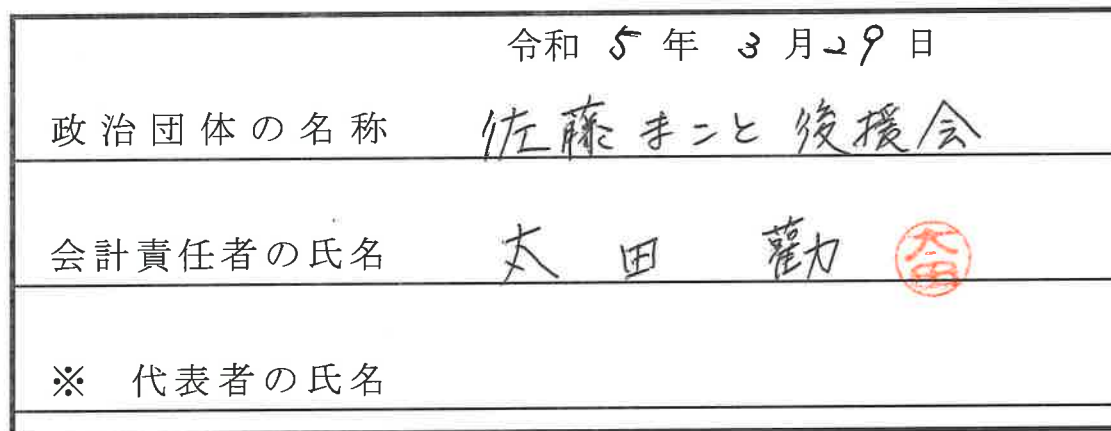 令和 5 年 3 月 29 日
政治団体の名称 佐藤まこと後援会
会計責任者の氏名 太田 勸 太田
※ 代表者の氏名